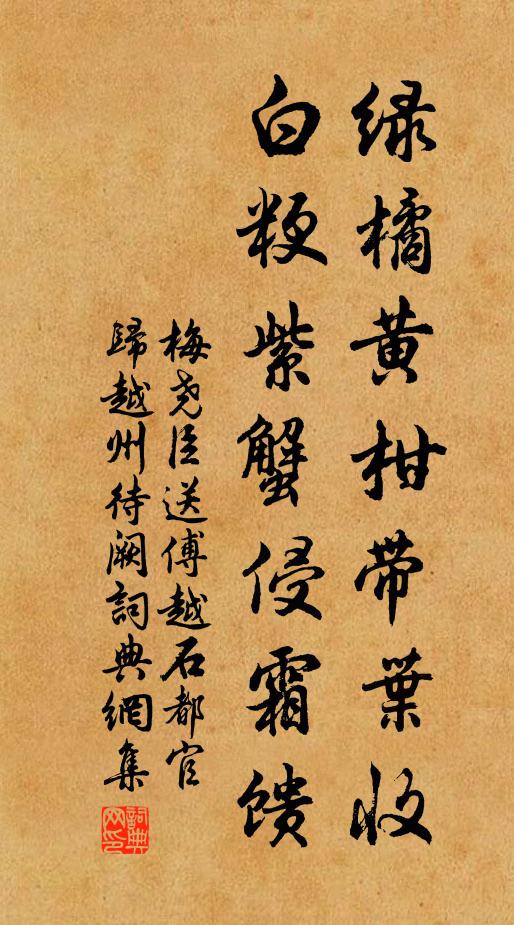 绿橘黄柑带葉收
白粳紫蟹侵霜馈
梅尧臣送傅越石都官
歸越州待阙詞典網集
詞典
网印